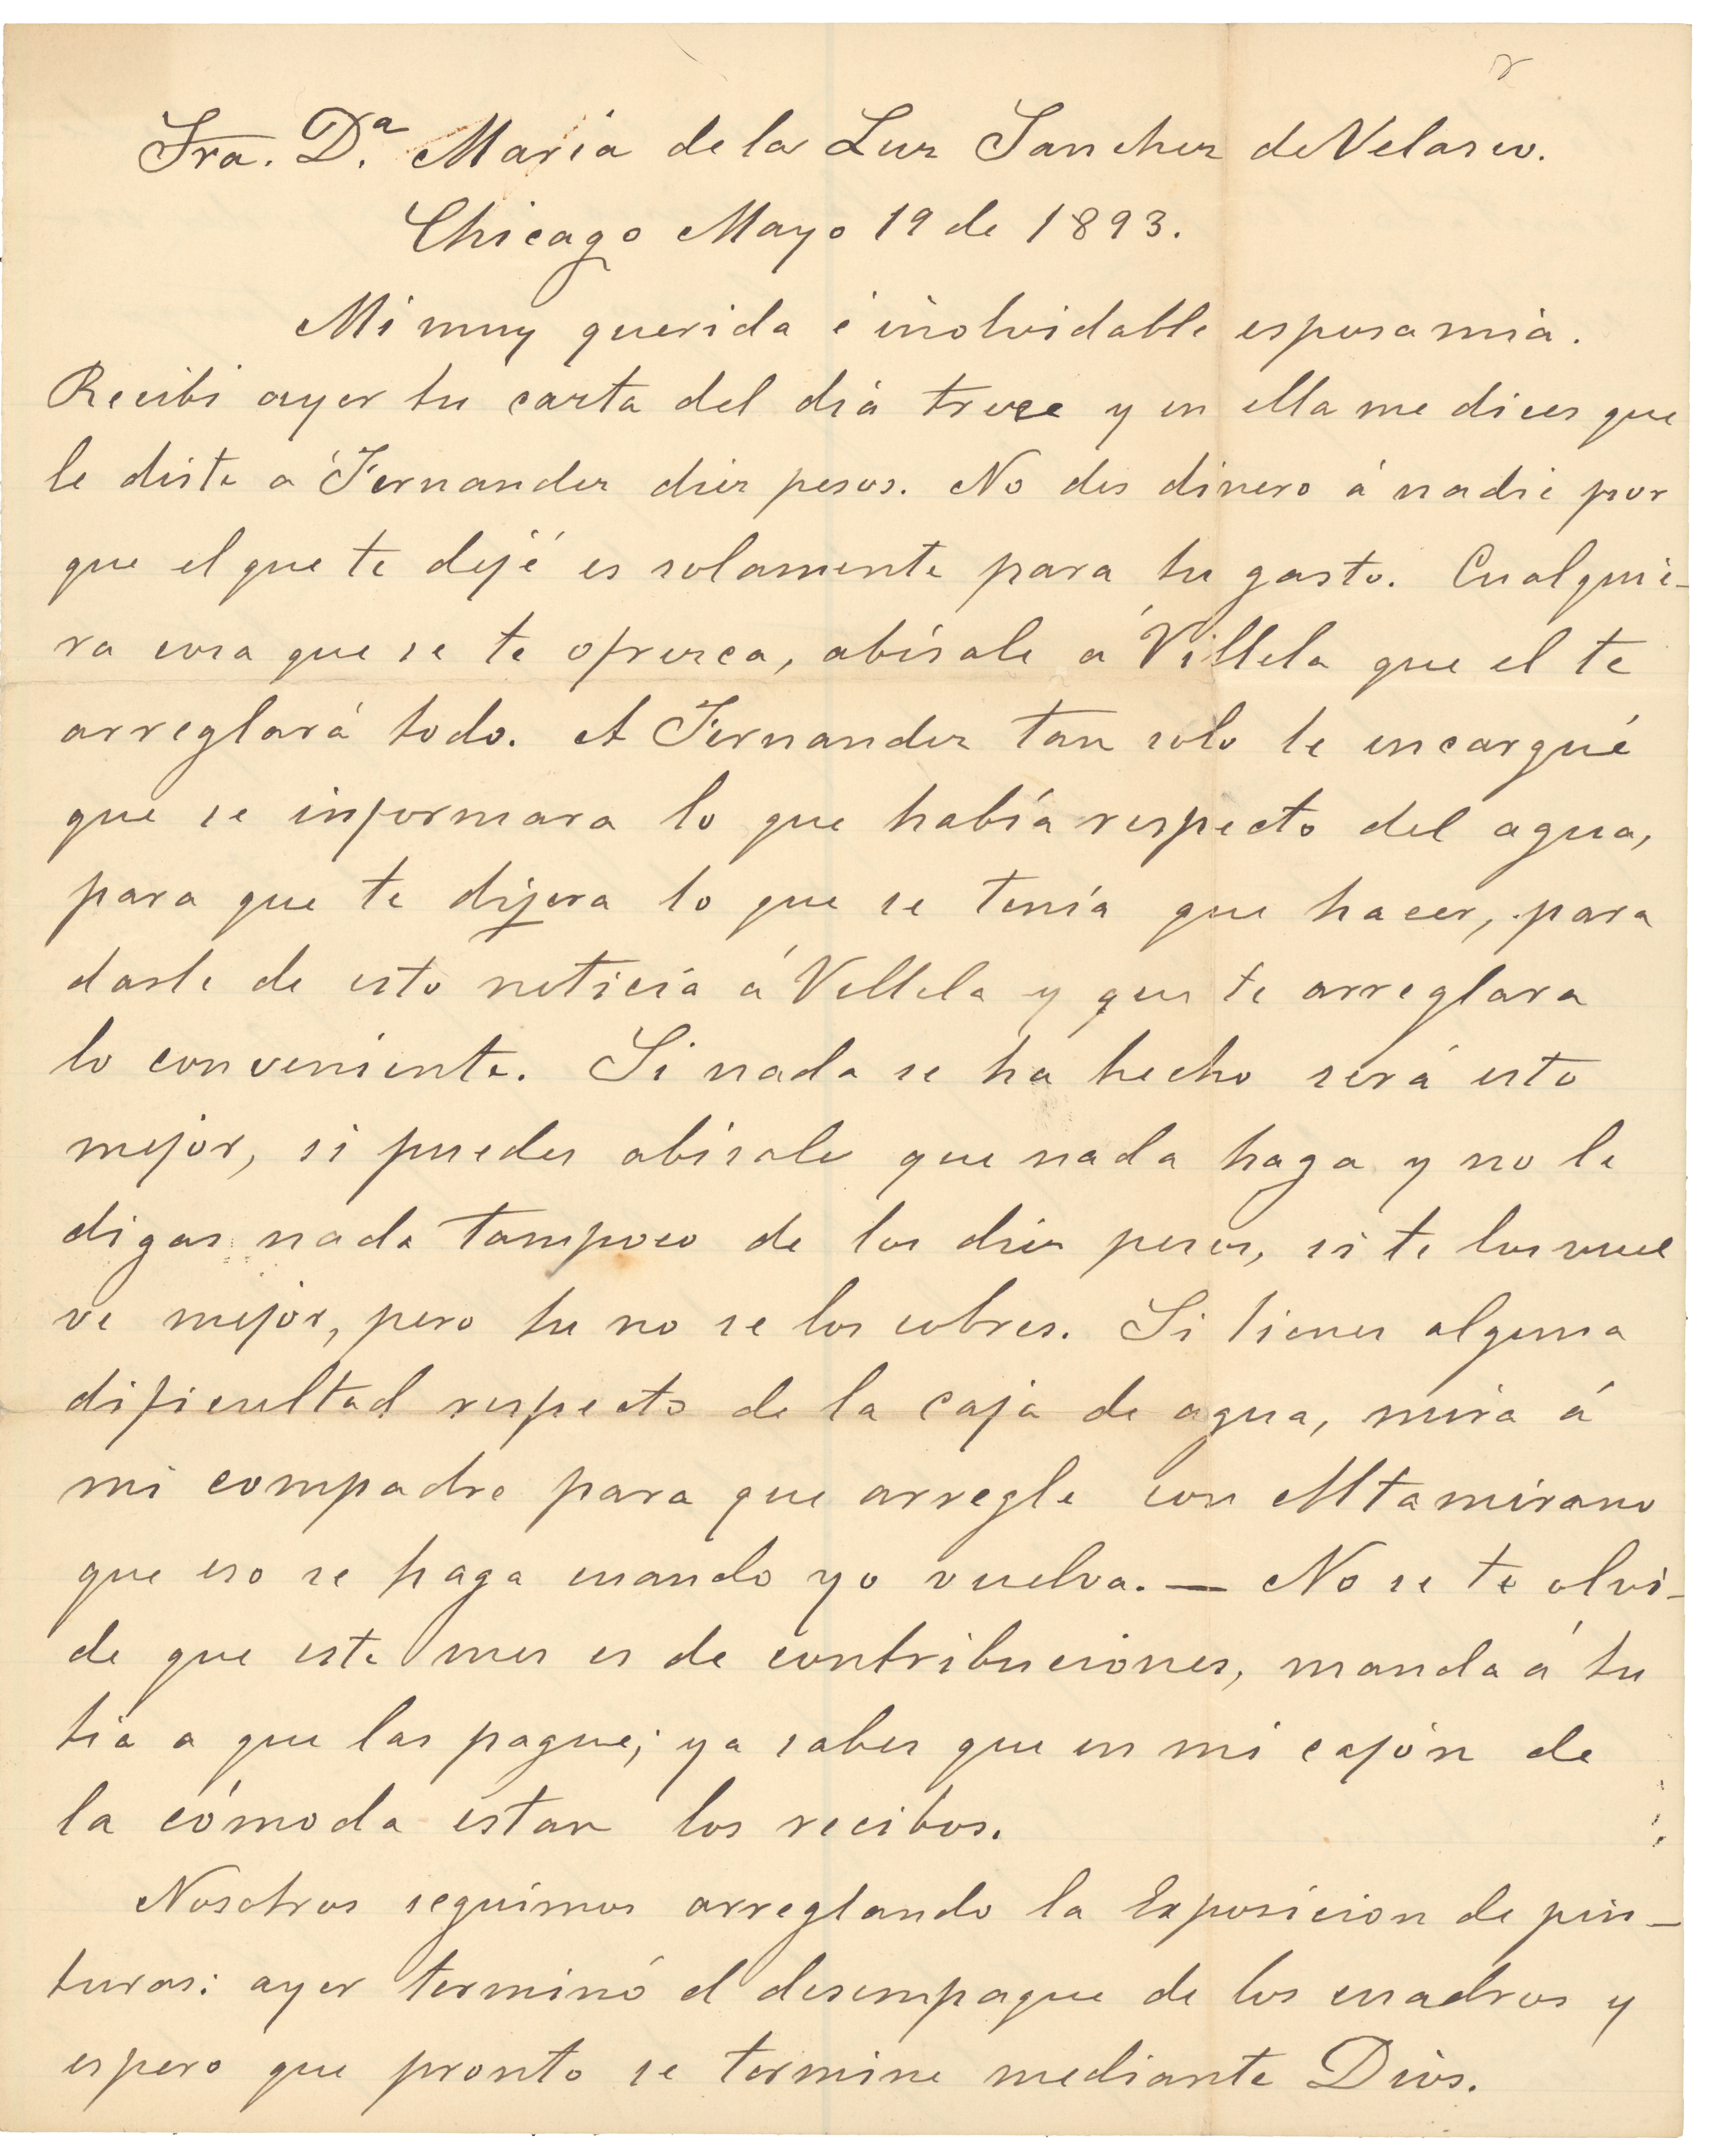 Sra. D.ª Maria de la Luz Sanchez de Velasco.
Chicago Mayo 19 de 1893.
Mi muy querida é inolvidable esposa mia.
Recibi ayer tu carta del diá trece y en ella me dices que
le diste á Fernandez diez pesos. No des dinero á nadie por
que el que te dejé es solamente para tu gasto. Cualquie-
ra cosa que se te ofresca, abísale á Villela que el te
arreglará todo. A Fernandez tan solo le encargué
que se informara lo que había respecto del agua,
para que te dijera lo que se tenía que hacer, para
darle de esto noticia á Villela y que te arreglara
lo conveniente. Si nada se ha hecho será esto
mejor, si puedes abísale que nada haga y no le
digas nada tampoco de los diez pesos, si te los vuel
ve mejor, pero tu no se los cobres. Si tienes alguna
dificultad respecto de la caja de agua, mira á
mi compadre para que arregle con Altamirano
que eso se haga cuando yo vuelva. — No se te olvi-
de que este mes es de contribuciones, manda á tu
tia a que las pague; ya sabes que en mi cajón de
la cómoda estan los recibos.
Nosotros seguimos arreglando la Exposicion de pin-
turas: ayer terminó el desempaque de los cuadros y
espero que pronto se termine mediante Dios.